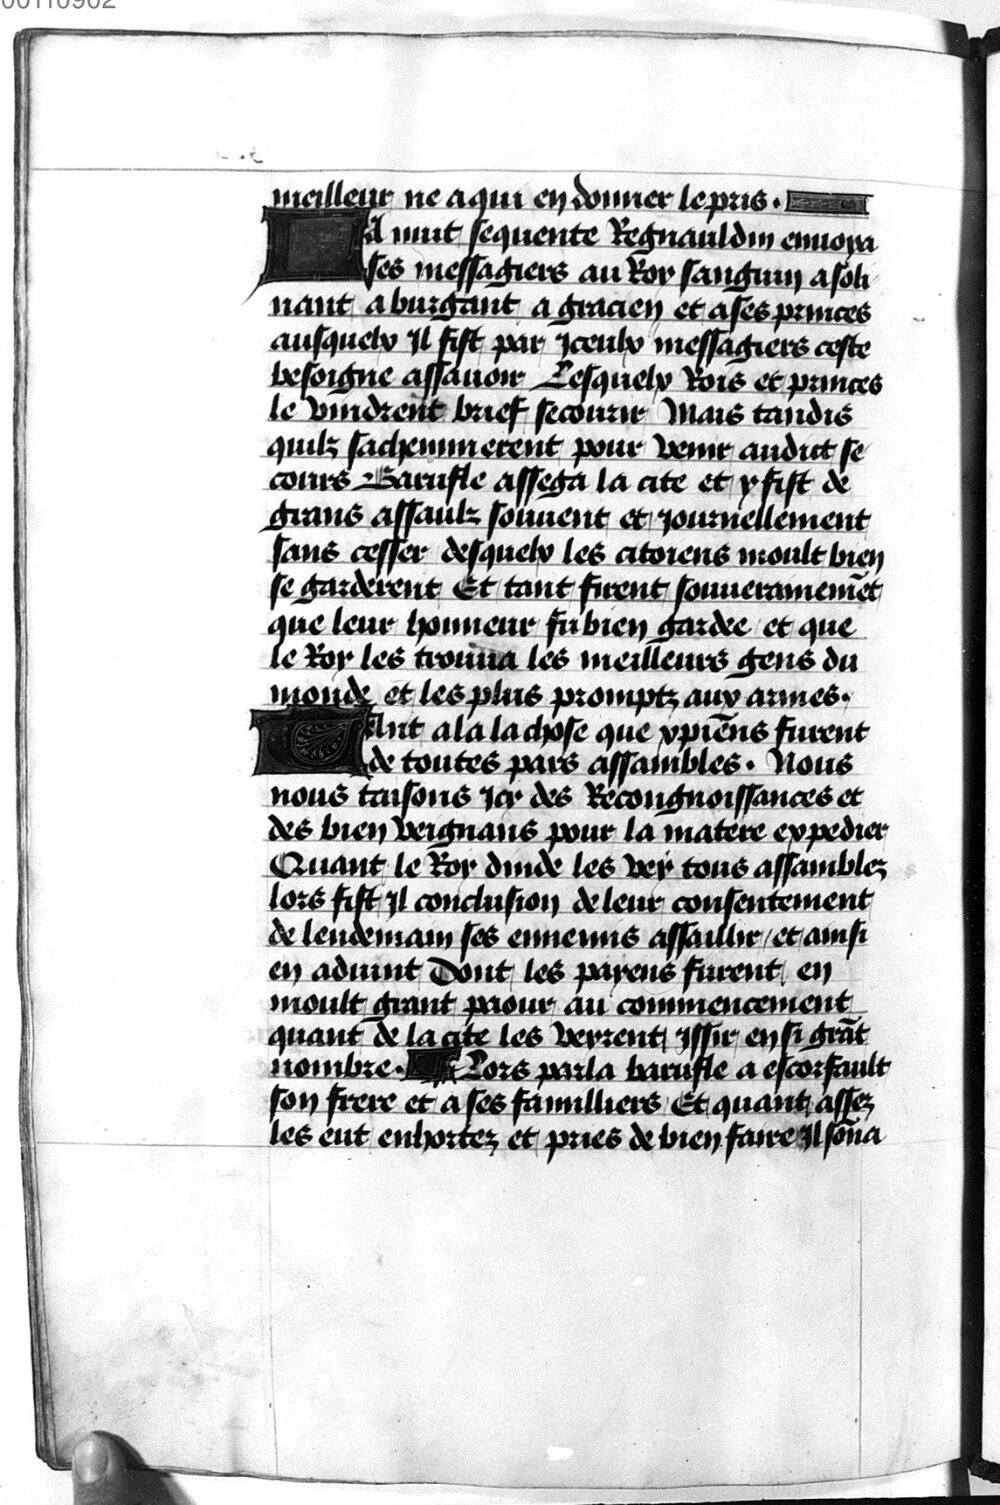 00110902
meilleur ne a qui en donner le pris.
A nuit sequente Regnauldin enuoya
ses messagiers au Roy sanguin a soli
nant a burgant a gracien et a ses princes
ausquelx Il fist par Iceulx messagiers ceste
besoigne assauoir Lesquelx Rois et princes
le vindrent brief secourir Mais tandis
quilz sacheminerent pour venir audict se
cours Barufle assega la cite et y fist de
grans assaulz souuent et Iournellement
sans cesser desquelx les citoiens moult bien
se garderent Et tant firent souuerainemēt
que leur honneur fu bien gardee et que
le Roy les trouua les meilleurs gens du
monde et les plus promptz aux armes.
Ant ala la chose que xpiēns furent
de toutes pars assambles. Nous
nous taisons Icy des Recongnoissances et
des bien veignans pour la matere expedier
Quant le Roy dinde les vey tous assamblez
lors fist Il conclusion de leur consentement
de lendemain ses ennemis assaillir / et ainsi
en aduint Dont les payens furent en
moult grant paour au commencement
quant de la cite les veyrent Issir en si grāt
nombre. Lors parla barufle a escorfault
son frere et a ses familliers Et quant assez
les eut enhortez et pries de bien faire Il soña